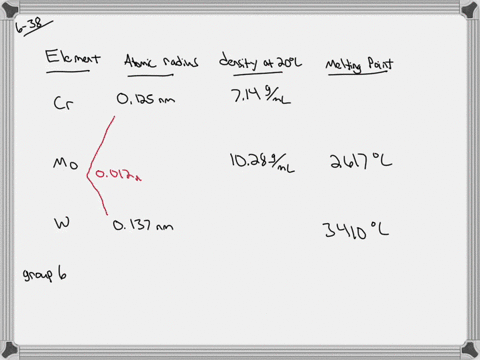 6-38
Element Atomic radius density at 20°C Melting Point
Cr 0.125 nm 7.14 g/mL
Mo 0.012n 10.28 g/mL 2617 °C
W 0.137 nm 3410 °C
group 6